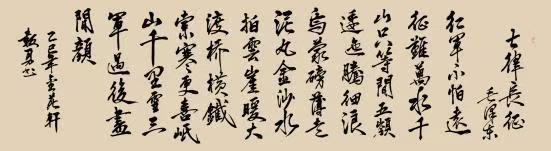 七律長征
毛澤东
红軍不怕遠
征難萬水千
山只等閒五嶺
逶迤騰細浪
烏蒙磅礴走
泥丸金沙水
拍雲崖暖大
渡桥横鐵
索寒更喜岷
山千里雪三
軍過後盡
開顏
乙巳年軒